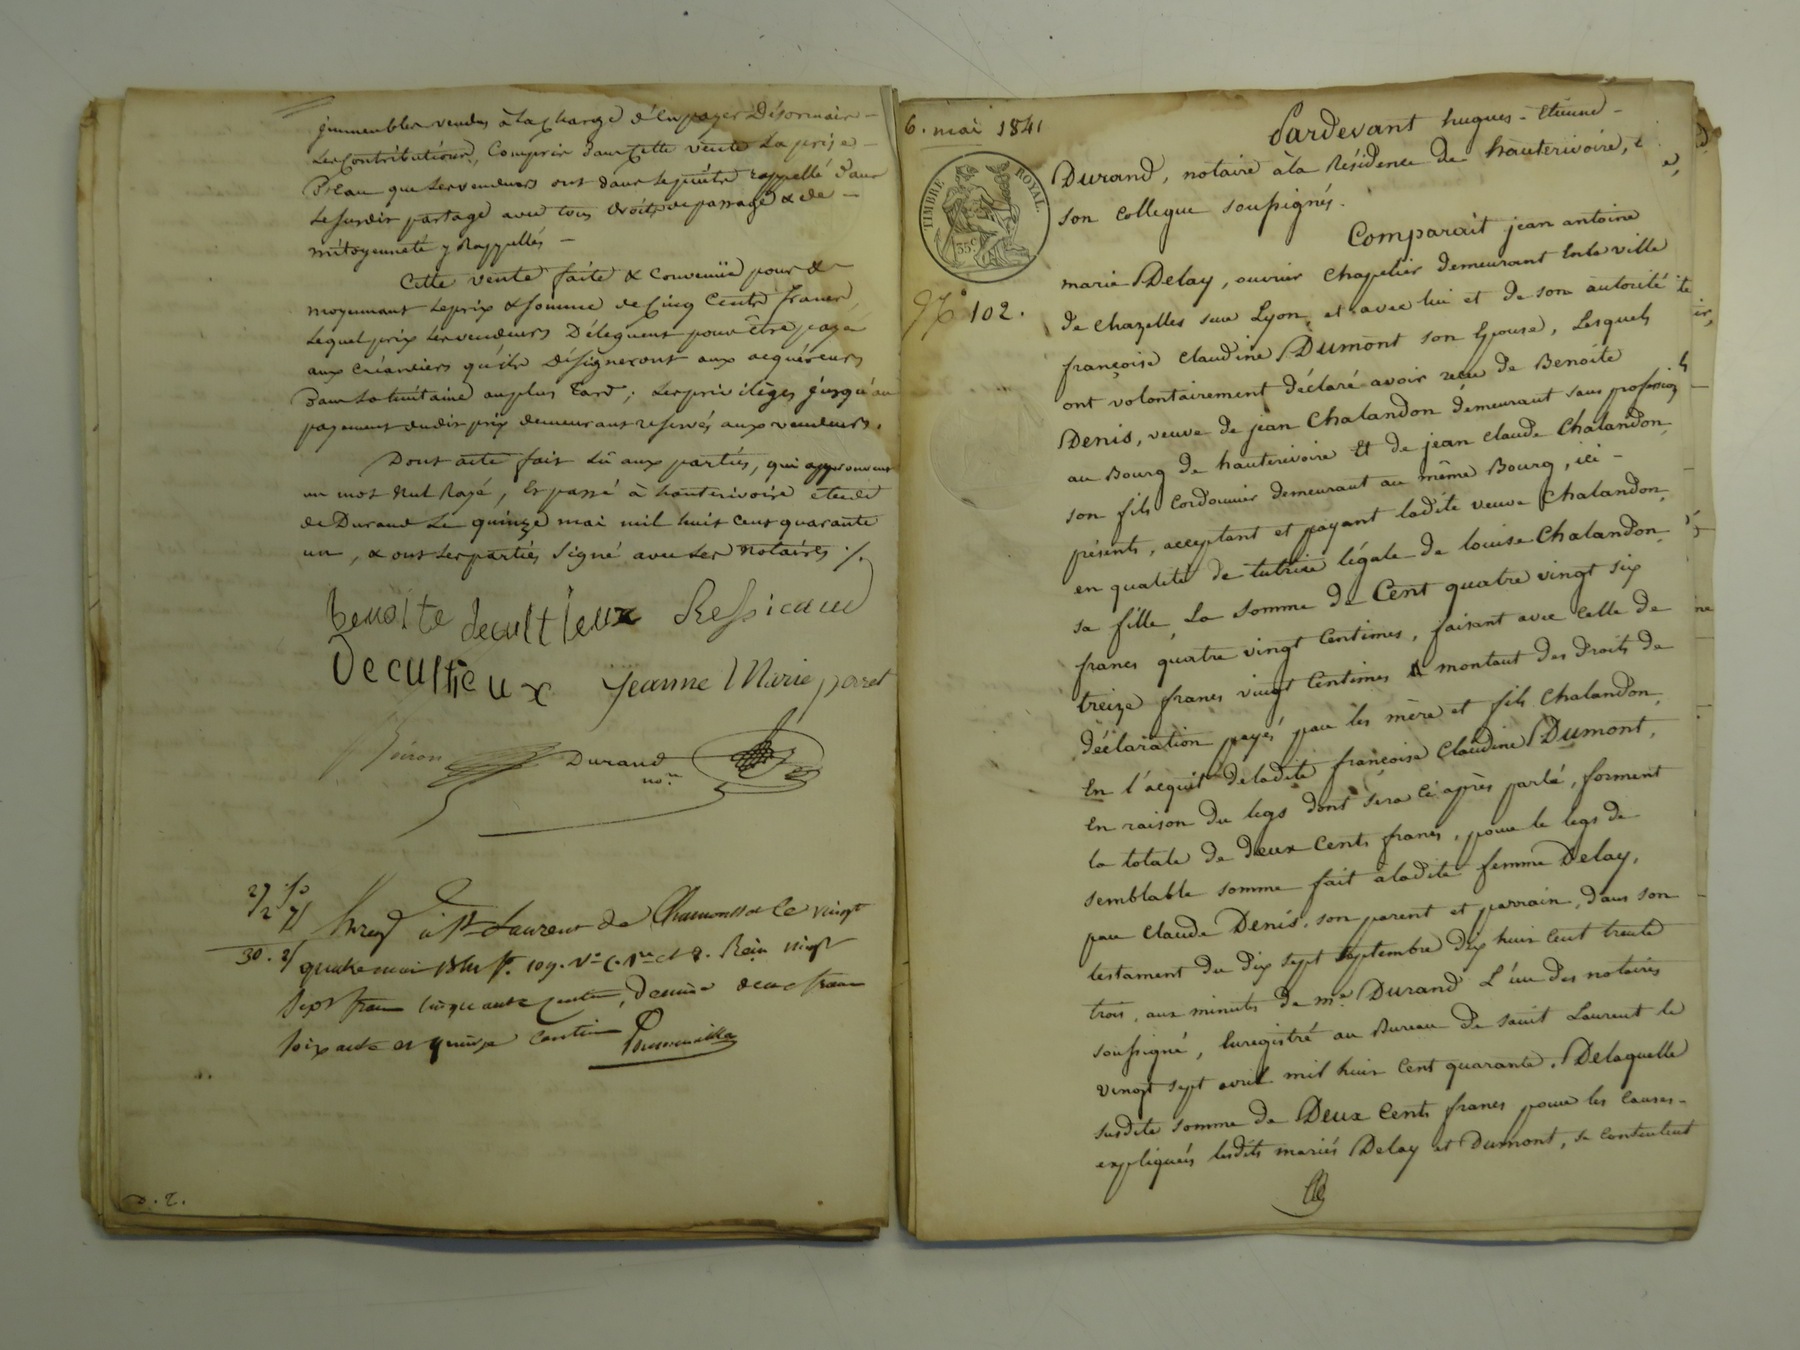 immeubles vendus à la charge d'en payer Désormais -
Les Contributions, Compris dans Cette vente La prise -
D'eau que Les vendeurs ont dans le rappellé dans
Le susdit partage avec tous droits de passage & de -
mitoyenneté y Rappellés -
Cette vente faite & Convenüe pour &
moyennant Le prix & somme de Cinq Cents francs,
Lequel prix Les vendeurs Délèguent pour être payé
aux Créanciers qu'ils désigneront aux acquéreurs
Dans La huitaine au plus tard; Les privilèges jusqu'au
payement dudit prix demeurant reservés aux vendeurs.
Dont acte fait Lû aux parties, qui approuvent
un mot Nul Rayé, Et passé à hauterivoire étude
de Durand Le quinze mai mil huit cent quarante
un, & ont Les parties Signé avec Les notaires ./.
Benoite decultieux
Decultieux Jeanne Marie
Durand
no.re
St Laurent de Chamousset le vingt
quatre mai 1841 f. 109. Reçu vingt
sept francs cinquante centimes, Dixième deux francs
soixante et quinze centimes
D. 2.
6. mai 1841
TIMBRE ROYAL.
35 c
N° 102.
Pardevant hugues - Etienne -
Durand, notaire à la Résidence de hauterivoire, &
son collegue soussignés.
Comparait jean antoine
marie Delay, ouvrier Chapelier demeurant En la ville
de chazelles sur Lyon, et avec lui et de son autorité
françoise claudine Dumont son Epouse, Lesquels
ont volontairement déclaré avoir reçu de Benoite
Denis, veuve de jean Chalandon demeurant sans profession
au Bourg de hauterivoire Et de jean claude Chalandon,
son fils Cordonnier demeurant au même Bourg, ici -
présents, acceptant et payant ladite veuve Chalandon,
en qualité de tutrice légale de louise Chalandon,
sa fille, La somme de Cent quatre vingt six
francs quatre vingt Centimes, faisant avec celle de
treize francs vingt Centimes montant des droits de
déclaration payés par les mère et fils Chalandon,
En l'acquit de ladite françoise Claudine Dumont,
En raison du legs dont sera ci après parlé, forment
la totale de deux Cents francs, pour le legs de
semblable somme fait à ladite femme Delay,
par Claude Denis, son parent et parrain, dans son
testament du dix sept septembre dix huit cent trente
trois, aux minutes de me Durand L'un des notaires
soussigné, Enregistré au Bureau de saint Laurent le
vingt sept avril mil huit Cent quarante. De laquelle
susdite somme de Deux Cents francs pour les causes -
expliquées lesdits mariés Delay et Dumont, se contentent